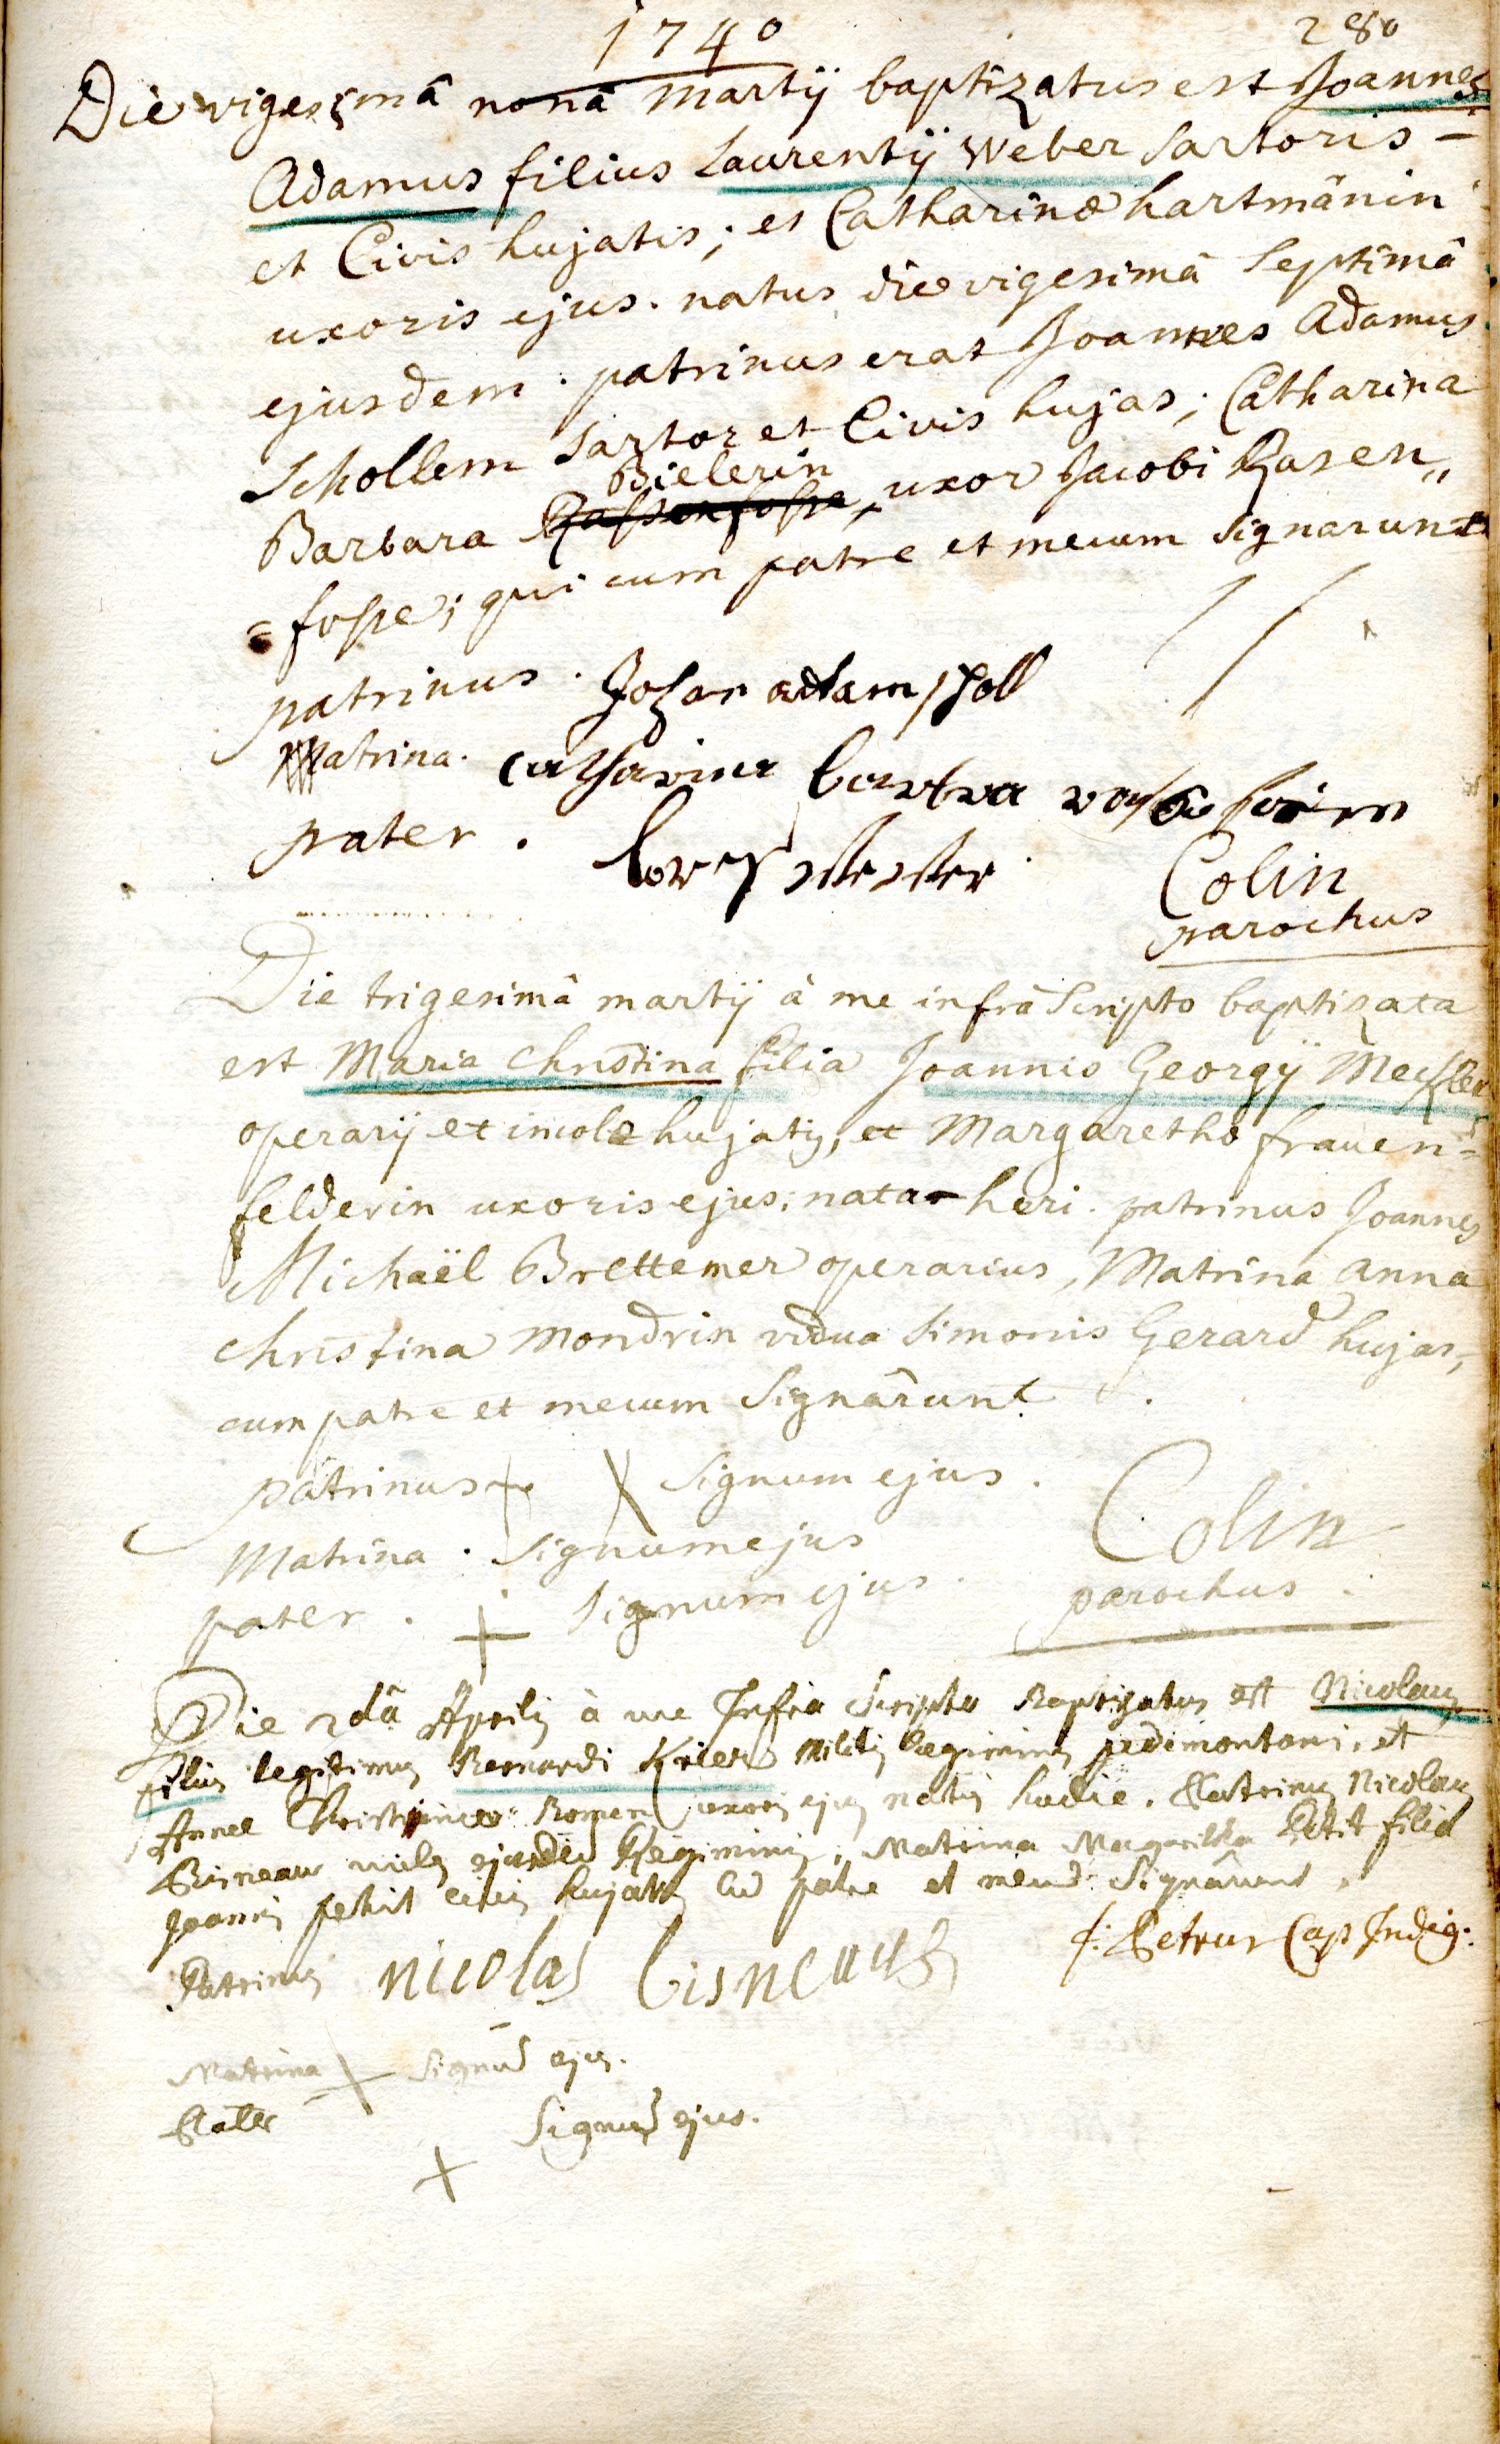 1740
280
Die vigesimâ nonâ Martÿ baptizatus est Joannes
Adamus filius Laurentÿ Weber sartoris
et Civis hujatis; et Catharinæ hartmänin
uxoris ejus. natus die vigesimâ septimâ
ejusdem. patrinus erat Joannes Adamus
Schollem sartor et Civis hujas; Catharina
Bielerin
Barbara uxor Jacobi Rasen„
=fosse; qui cum patre et mecum signarunt
patrinus. Johan adam scholl
Matrina. Catharina barbra
pater.
Colin
parochus
Die trigesimâ martÿ â me infrà scripto baptizata
est Maria Christina filia Joannis Georgÿ Mechler
operarÿ et incolæ hujatis, et Margarethæ frauen=
felderin uxoris ejus; nata heri. patrinus Joannes
Michaël Brettemer operarius, Matrina anna
Christina Mondrin vidua Simonis Gerard hujas,
cum patre et mecum signârunt.
patrinus + signum ejus.
Matrina. signum ejus
pater. + signum ejus.
Colin
parochus.
Die 2dâ Aprilis à me Infra scripto Baptizatus est Nicolaus
filius legitimus Bernardi Krier Militis Regiminis pedimontani, et
Annæ Romen uxoris ejus natus hodie. Patrinus Nicolaus
Bisneau miles ejusdem Regiminis, Matrina Margaritha Petit filia
Joannis petit civis hujatis cum patre et mecum signârunt.
f: Petrus Cap Indig.
Patrinus nicolas
Matrina + signum ejus.
Pater + signum ejus.